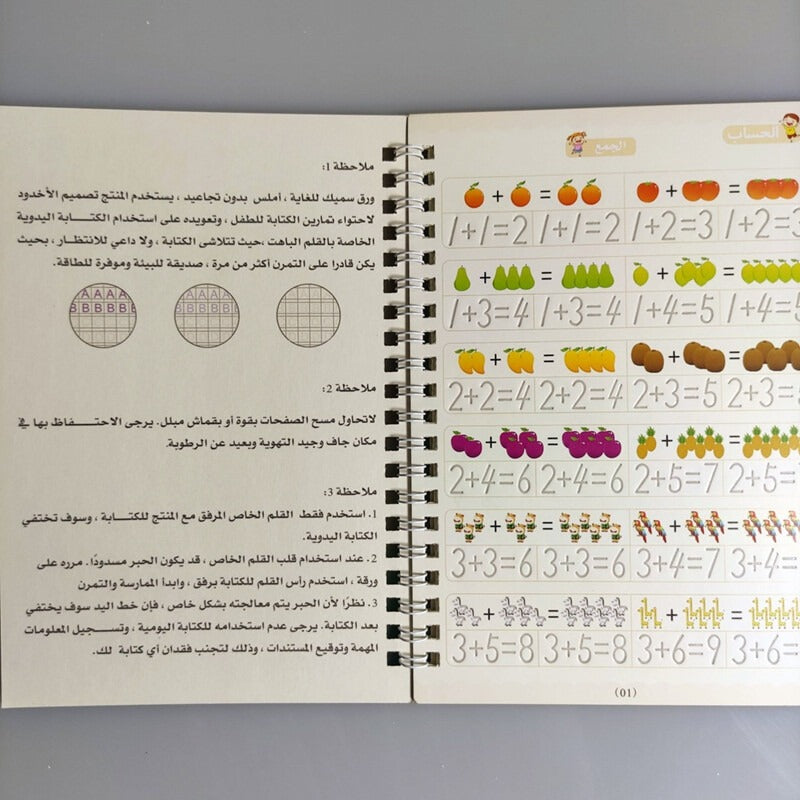 ملاحظة 1:
ورق سميك للغاية ، أملس بدون تجاعيد ، يستخدم المنتج تصميم الأخدود
لاحتواء تمارين الكتابة للطفل ، وتعويده على استخدام الكتـــابة اليدوية
الخاصة بالقلم الباهت ،حيث تتلاشى الكتابة ، ولا داعي للانتظار ، بحيث
يكن قادرا على التمرن أكثر من مرة ، صديقة للبيئة وموفرة للطاقة.
A A A A
B B B B B
A A A A
B B B B
ملاحظة 2:
لاتحاول مسح الصفحات بقوة أو بقماش مبلل. يرجى الاحتـــفاظ بها في
مكان جاف وجيد التهوية وبعيد عن الرطوبة.
ملاحظة 3:
1. استخدم فقط القلم الخاص المرفق مع المنتج للكتـــابة ، وسوف تختفي
الكتابة اليدوية.
2. عند استخدام قلب القلم الخاص ، قد يكون الحبر مسدودًا. مرره على
ورقة ، استخدم رأس القلم للكتابة برفق ، وابدأ الممارسة والتمرن
3. نظرًا لأن الحبر يتم معالجته بشكل خاص ، فإن خط اليد سوف يختفي
بعد الكتابة. يرجى عدم استخدامه للكتابة اليومية ، وتســـجيل المعلومات
المهمة وتوقيع المستندات ، وذلك لتجنب فقدان أي كتابة لك.
الحساب
الجمع
+ = + =
1+1=2 1+1=2 1+2=3 1+2=3
+ = + =
1+3=4 1+3=4 1+4=5 1+4=5
+ = + =
2+2=4 2+2=4 2+3=5 2+3=
+ = + =
2+4=6 2+4=6 2+5=7 2+5=
+ = + =
3+3=6 3+3=6 3+4=7 3+4=
+ = + =
3+5=8 3+5=8 3+6=9 3+6=
(01)